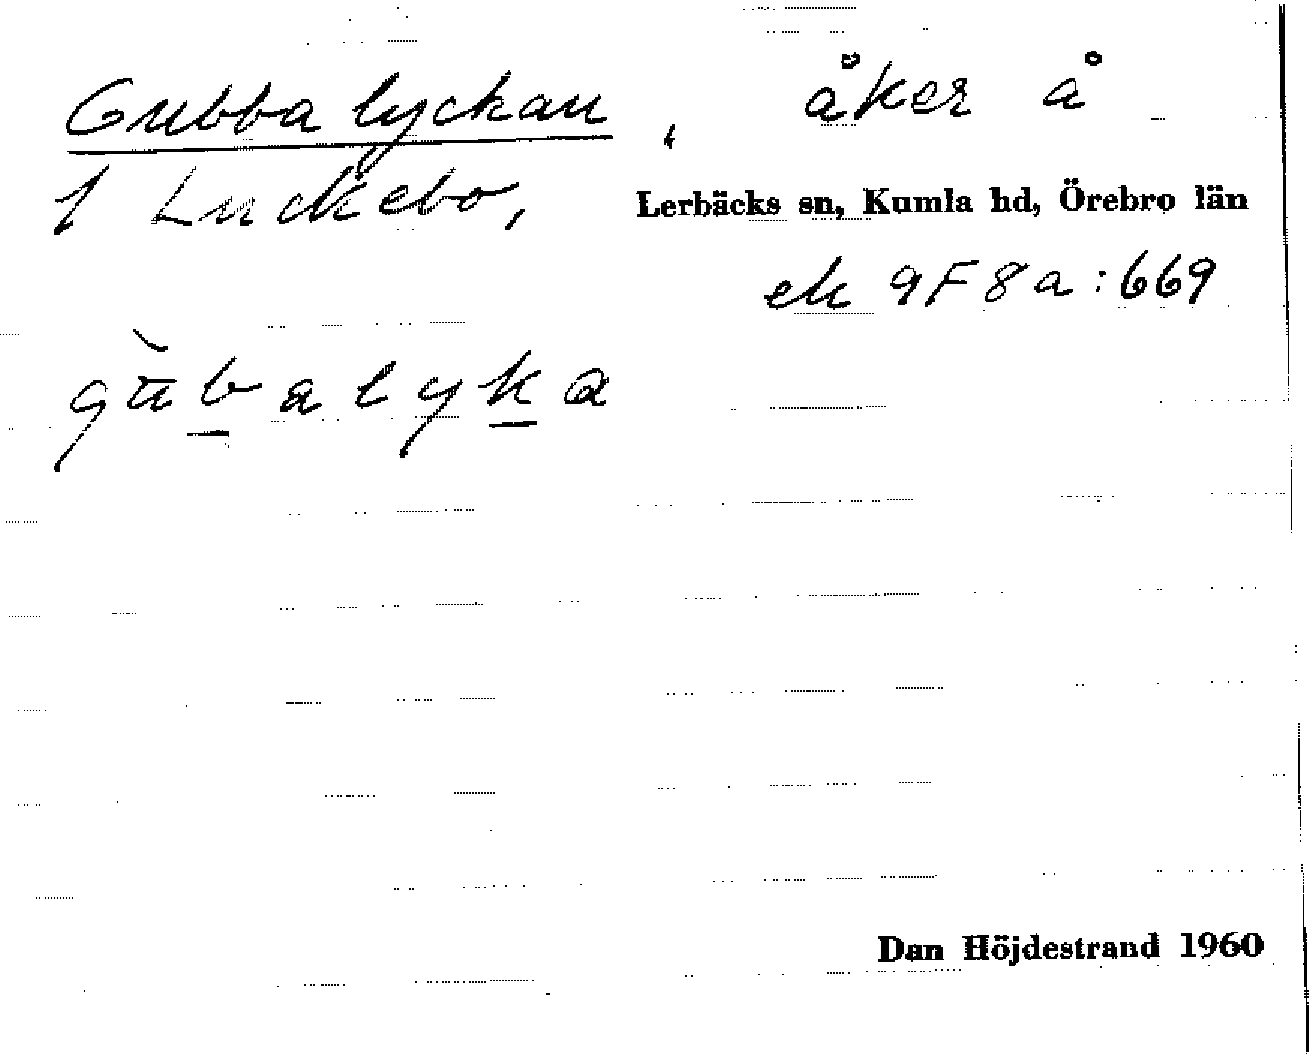 Gubbalyckan, åker å
1 Luckebo, Lerbäcks sn, Kumla hd, Örebro län
ek 9F8a:669
gùbalyka
Dan Höjdestrand 1960